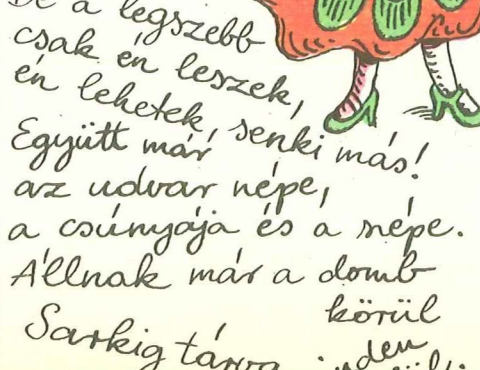 De a legszebb
csak én leszek,
én lehetek, senki más!
Együtt már
az udvar népe,
a csúnyája és a szépe.
Állnak már a domb
körül
Sarkig tárva